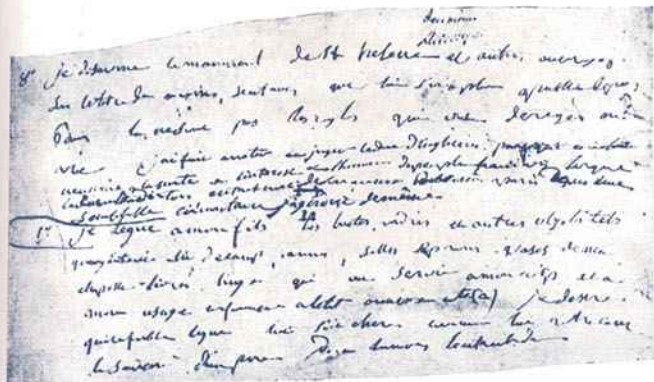 8° je desavoue le manuscrit de Ste helene et autres ouvrages
sous le titre de maximes, sentences, que l'on s'est plu a publier depuis
six ans la ne sont pas les regles qui ont dirigés ma
vie j'ai fait arreter et juger le duc d'Enghien parceque cela etait
necessaire a la sureté a l'interest et a l'honneur du peuple francais lorsque
le comte d'artois a paris dans une
semblable circonstance j'agirois de même
1° je legue a mon fils les boites, ordres et autres objets tels
qu'argenterie lit de camp, armes, selles eperons vases de ma
chapelle livres linge qui ont servi a mon corps et a
mon usage (a) je desire
que ce faible legue lui soit cher comme lui retracant
le souvenir d'un pere dont l'univers l'entretiendra